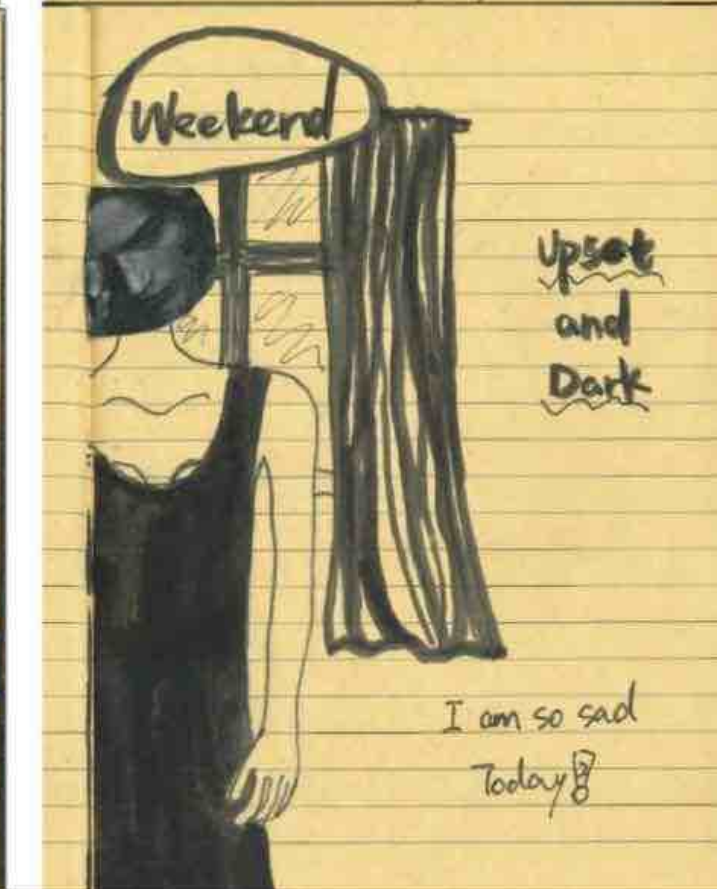 Weekend
Upset
and
Dark
I am so sad
Today!